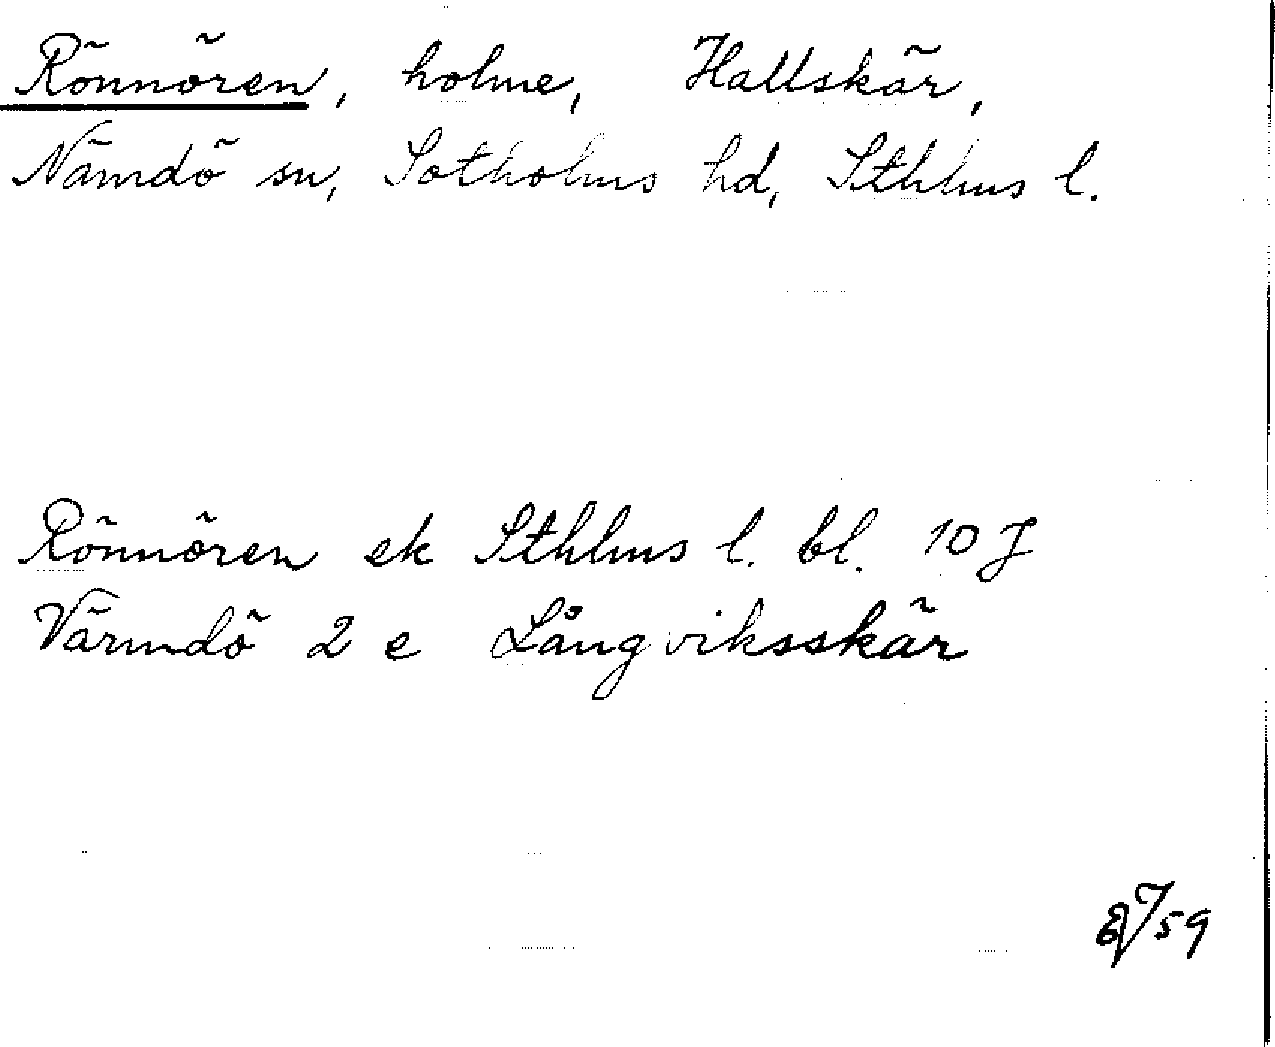 Rönnören, holme, Hallskär,
Nämdö sn, Sotholms hd, Sthlms l.
Rönnören ek Sthlms l. bl. 10 J
Värmdö 2 e Långviksskär
59